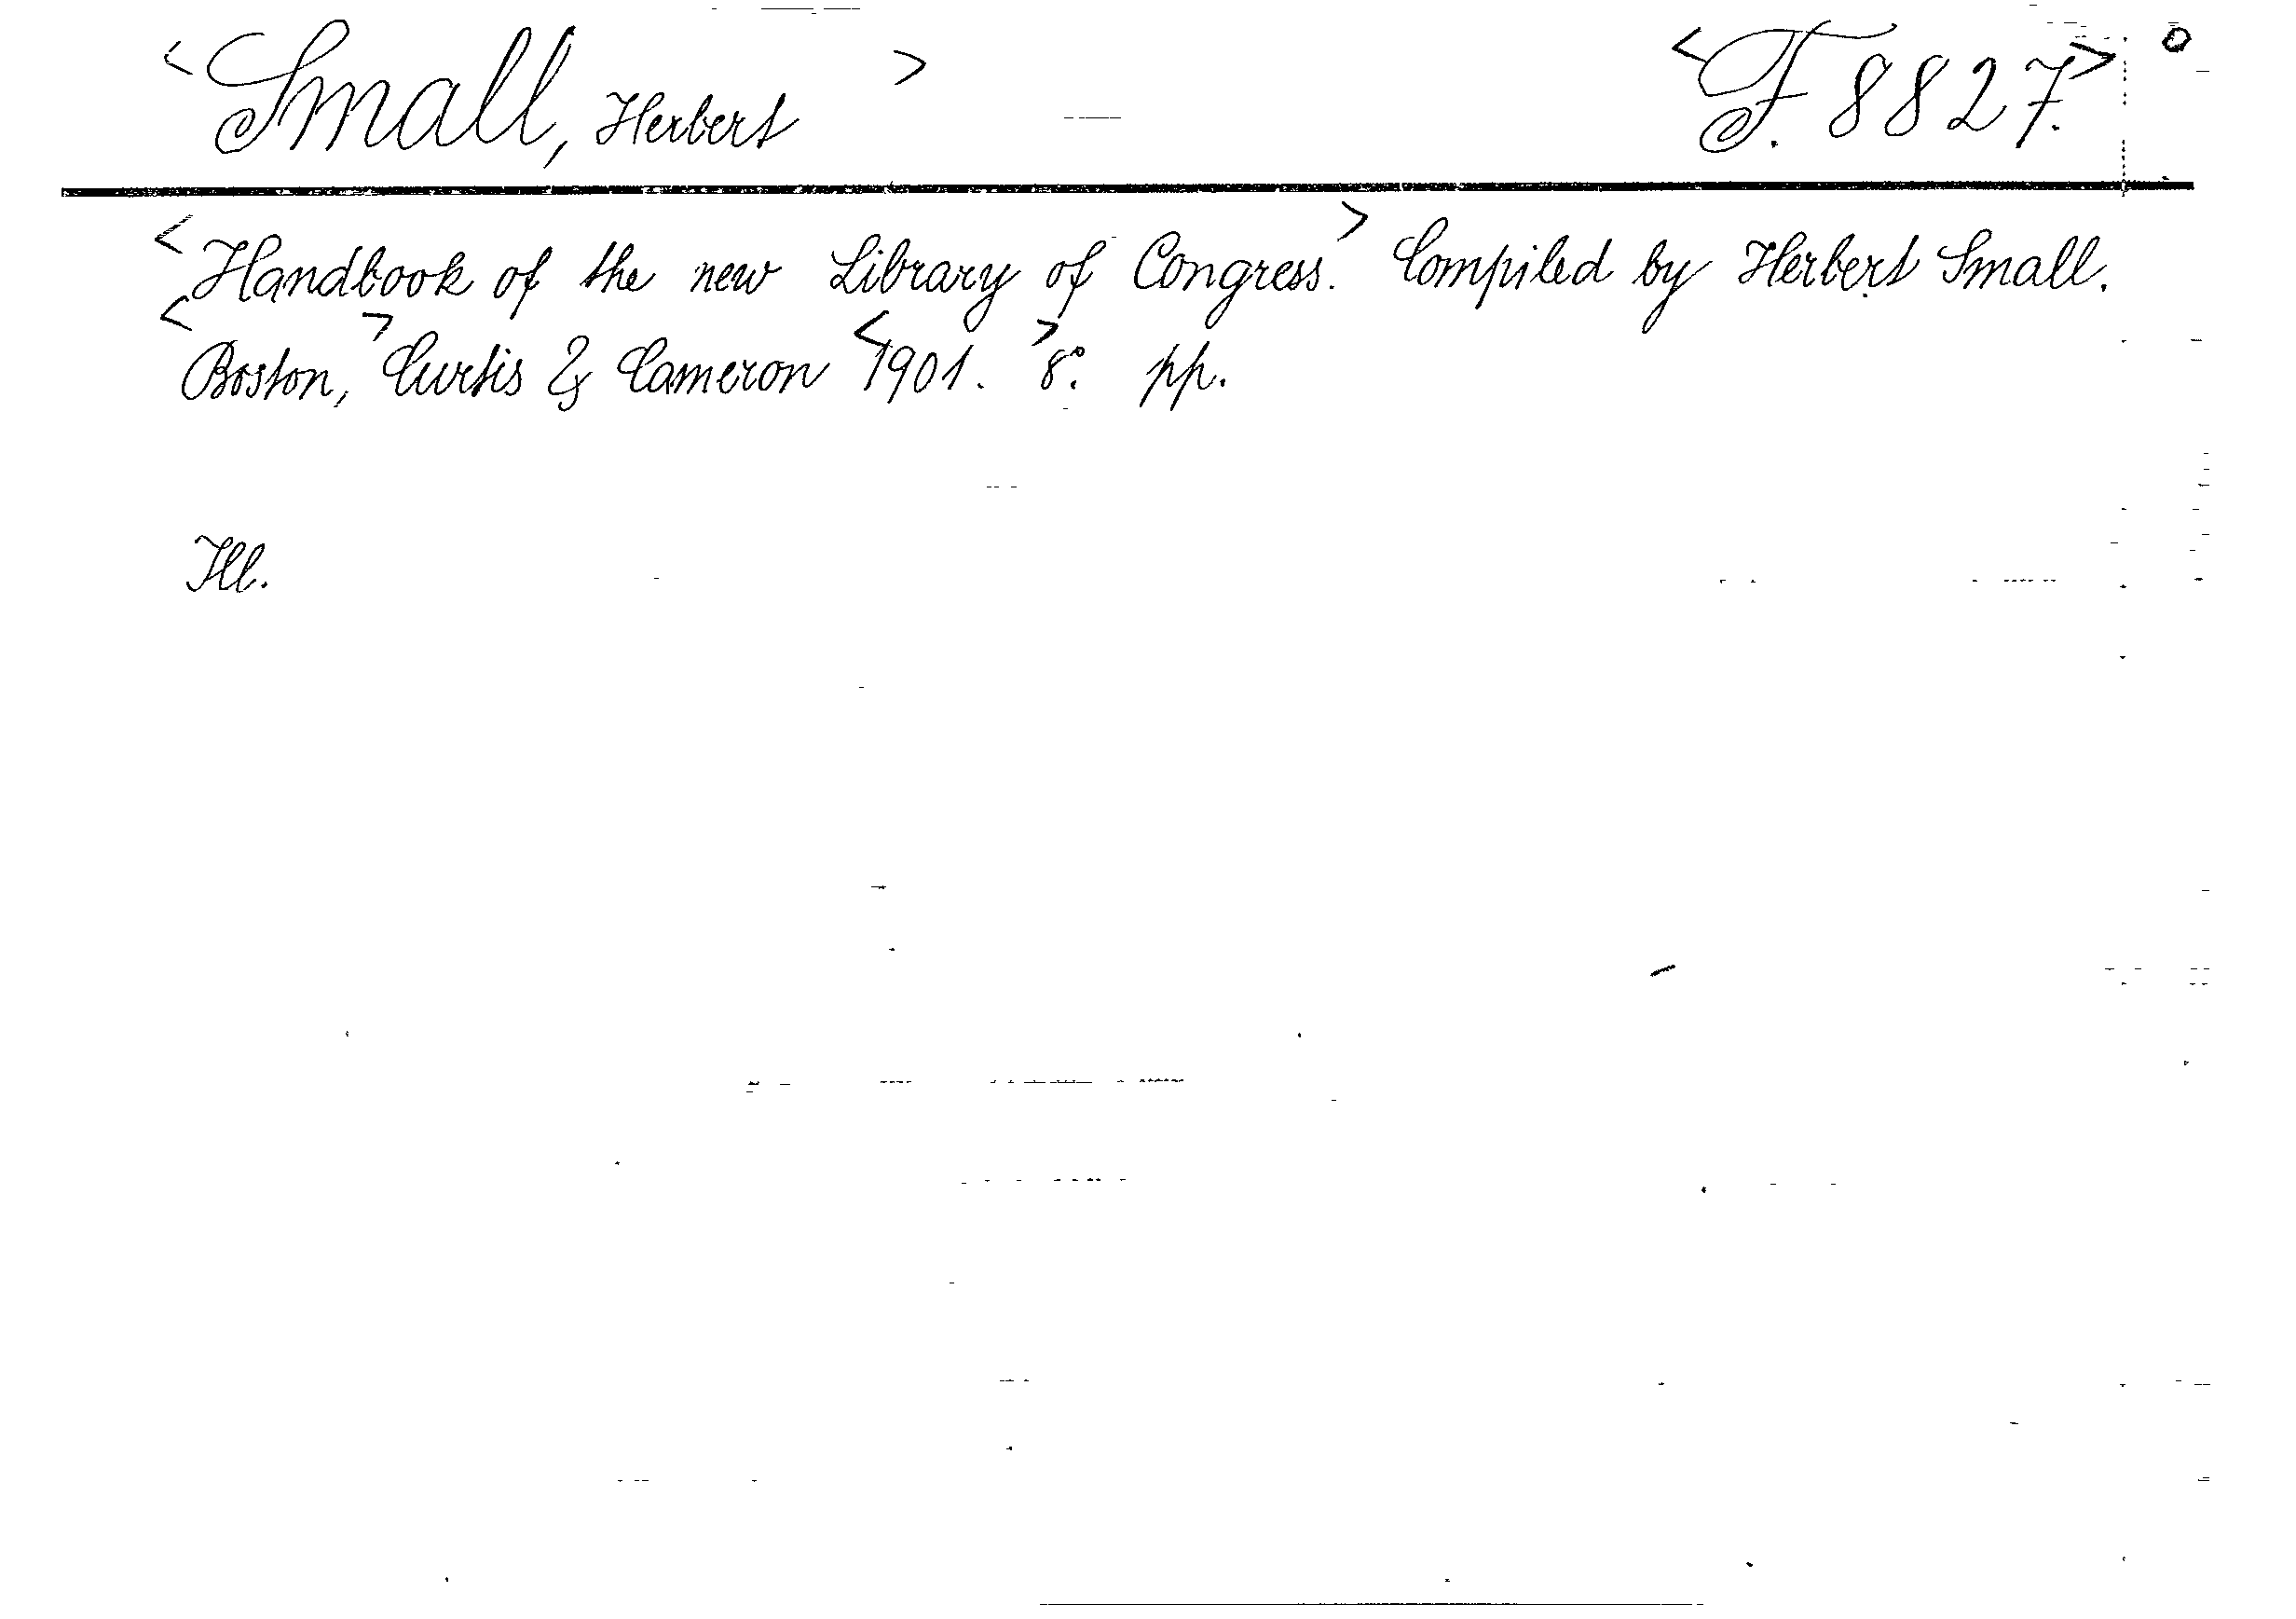 <Small, Herbert> <F. 8827.> o
<Handbook of the new Library of Congress.> Compiled by Herbert Small.
<Boston,> Curtis & Cameron <1901.> 8°. pp.
Ill.